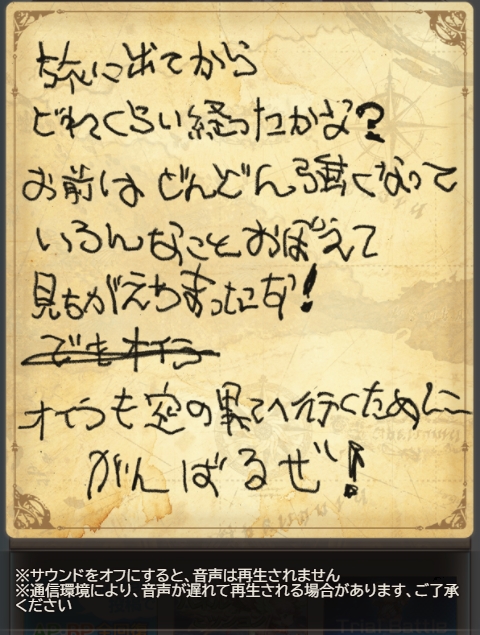 旅に出てから
どれくらい経ったかな?
お前はどんどん強くなって
いろんなことおぼえて
見ちがえちまったな!
でもオイラ
オイラも空の果てへ行くために
がんばるぜ!
※サウンドをオフにすると、音声は再生されません
※通信環境により、音声が遅れて再生される場合があります、ご了承
ください
Trial Battle